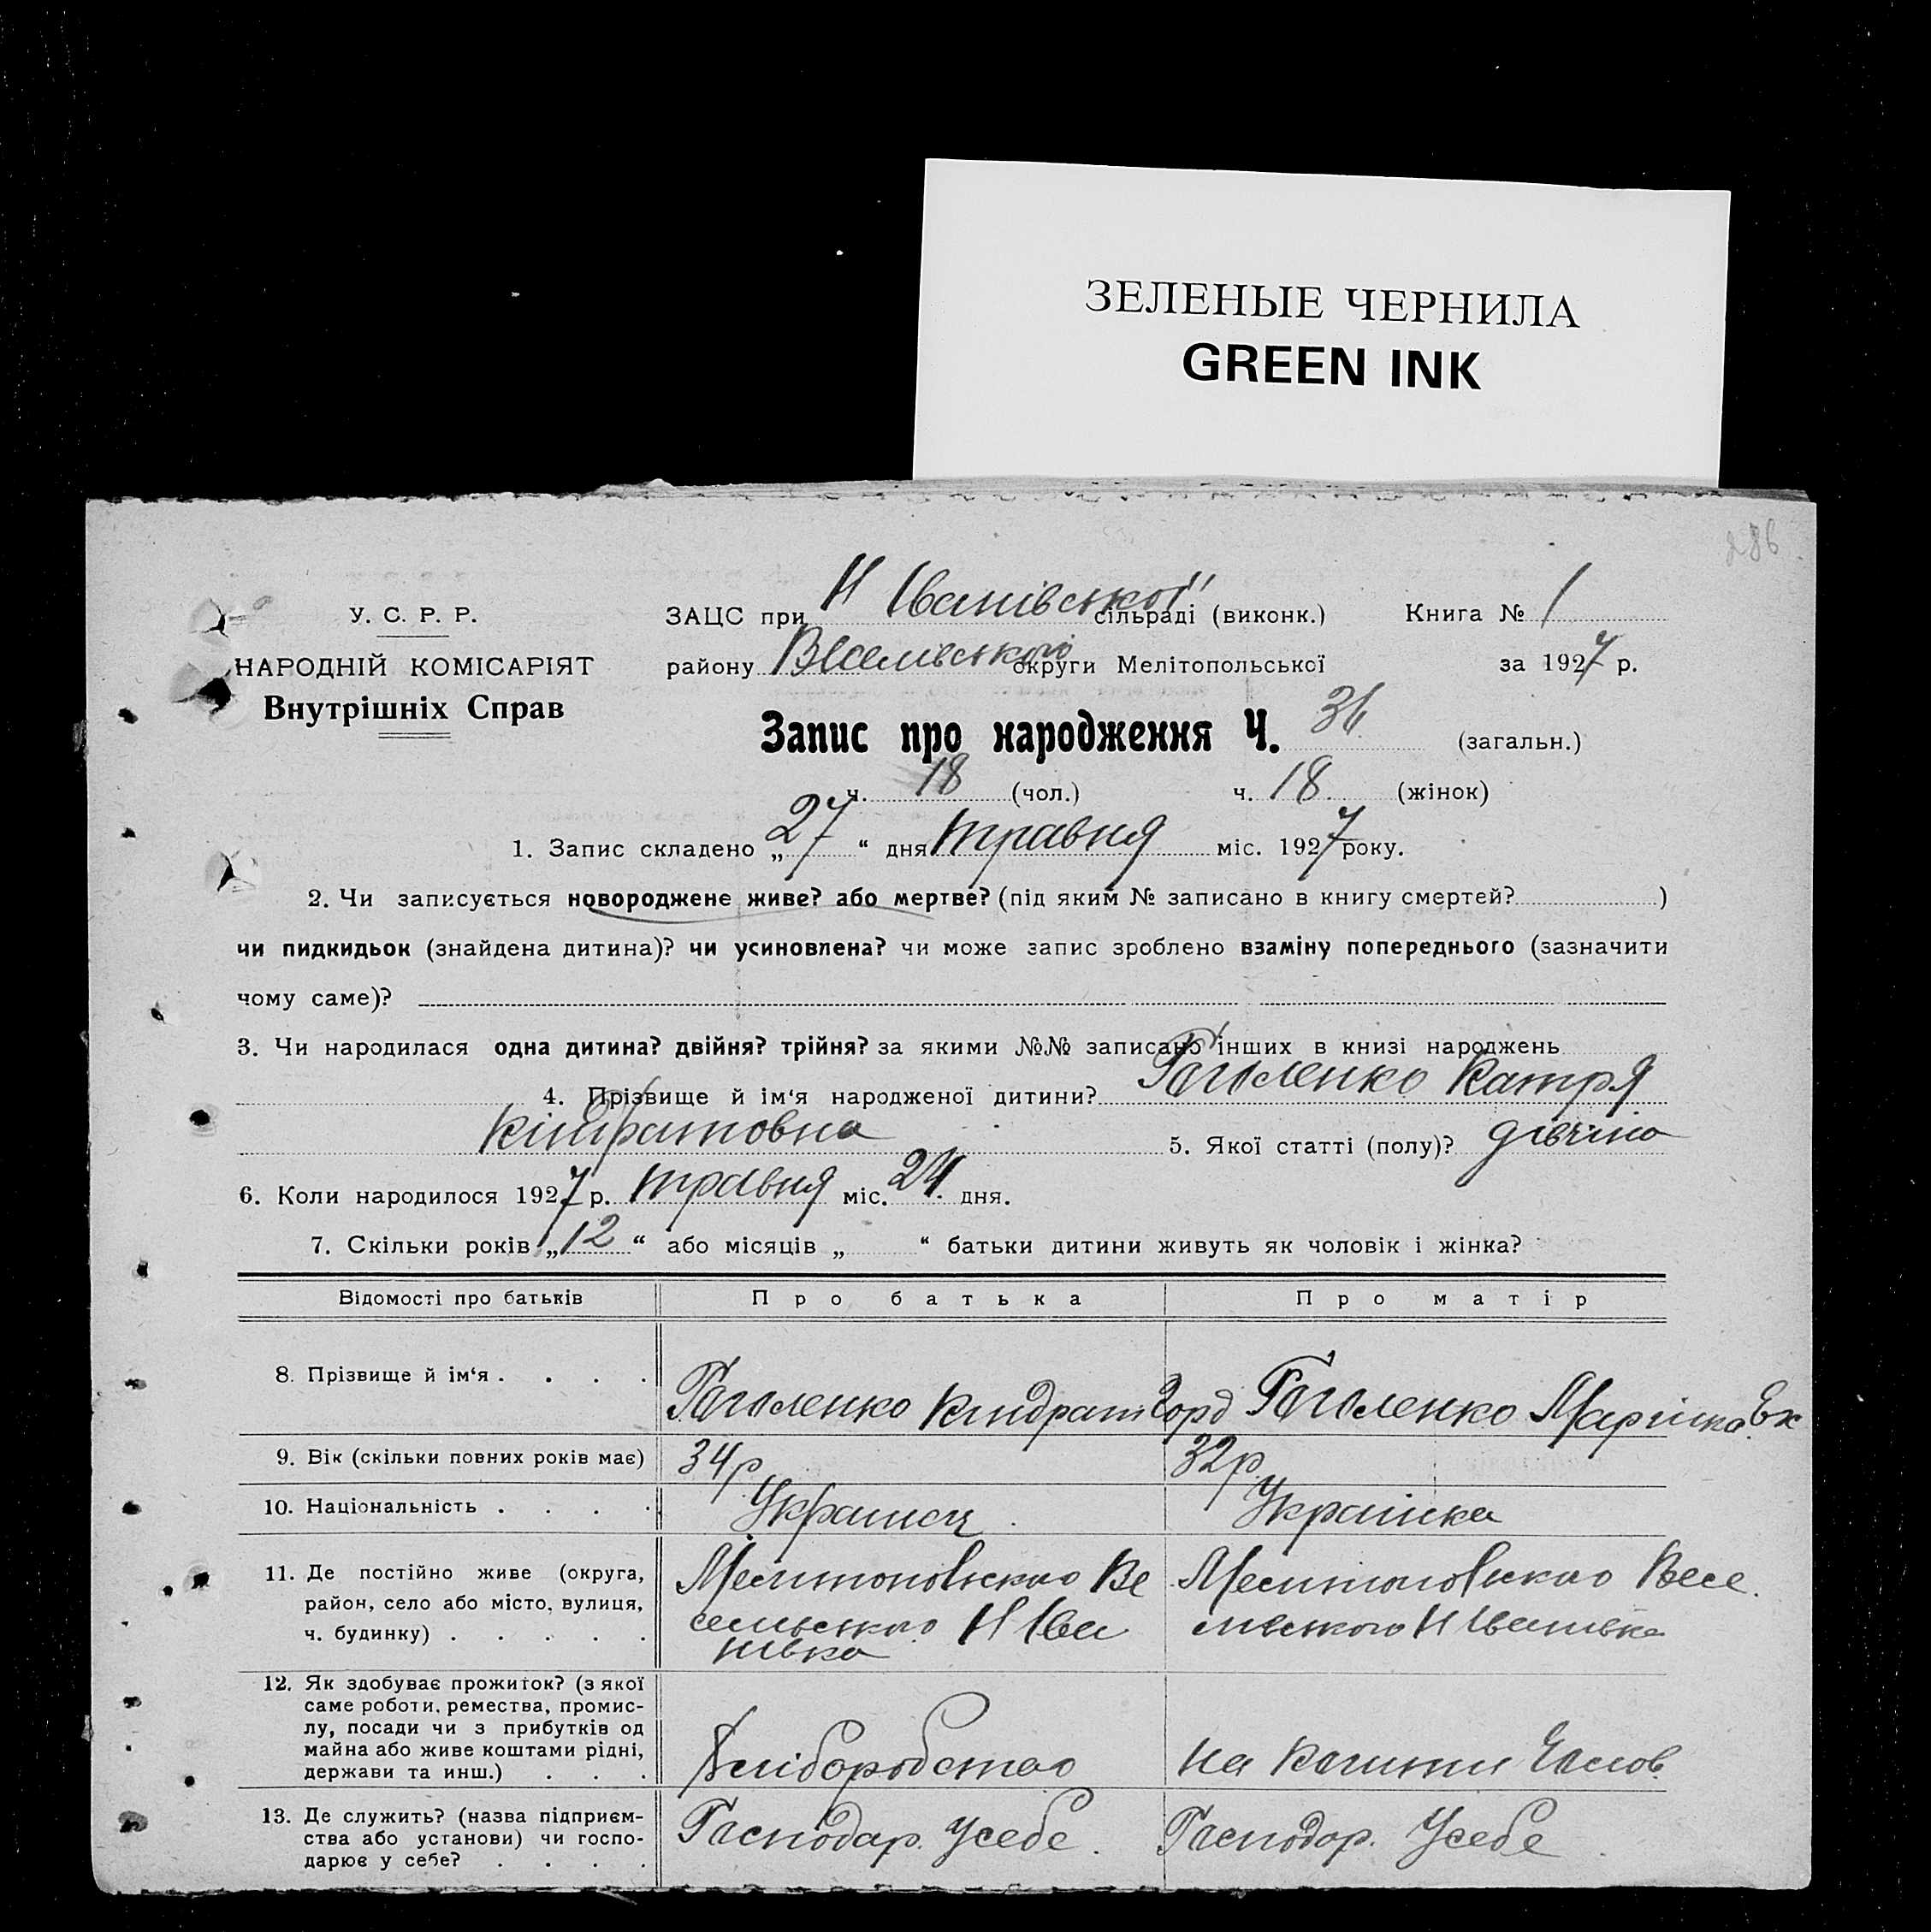 ЗЕЛЕНЫЕ ЧЕРНИЛА
GREEN INK
286
У. С. Р. Р.
НАРОДНІЙ КОМІСАРІЯТ
Внутрішніх Справ
ЗАЦС при Н Іванівської сільраді (виконк.) Книга № 1
району Веселівського округи Мелітопольської за 1927 р.
Запис про народження Ч. 36 (загальн.)
ч. 18 (чол.) ч. 18 (жінок)
1. Запис складено „27“ дня травня міс. 1927 року.
2. Чи записується новороджене живе? або мертве? (під яким № записано в книгу смертей? )
чи пидкидьок (знайдена дитина)? чи усиновлена? чи може запис зроблено взаміну попереднього (зазначити
чому саме)?
3. Чи народилася одна дитина? двійня? трійня? за якими №№ записано інших в книзі народжень
4. Прізвище й ім‘я народженої дитини? Гоголенко Катря
Кіндратовна 5. Якої статті (полу)? дівчина
6. Коли народилося 1927 р. травня міс. 24 дня.
7. Скільки років „12“ або місяців „ “ батьки дитини живуть як чоловік і жінка?
Відомості про батьків Про батька Про матір
8. Прізвище й ім‘я . . . . Гоголенко Киндрат Горд Гоголенко Марішка Ек
9. Вік (скільки повних років має) 34р 32р
10. Національність . . . . Украинец Украінка
11. Де постійно живе (округа,
район, село або місто, вулиця,
ч. будинку) . . . . .
Мелитоповского Ве
сельского Н Іва
нівка
Мелитоповского Весе
лівского Н Іванивка
12. Як здобуває прожиток? (з якої
саме роботи, ремества, промис-
лу, посади чи з прибутків од
майна або живе коштами рідні,
держави та инш.) . . .
Хліборобство
на кошти Чолов.
13. Де служить? (назва підприєм-
ства або установи) чи госпо-
дарює у себе? . . . .
Господар. Усебе.
Господор. Усебе